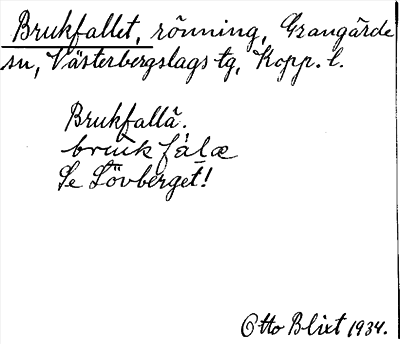 Brukfallet, rönning, Grangärde
sn, Västerbergslags tg, Kopp. l.
Brukfallä.
Se Lövberget!
Otto Blixt 1934.